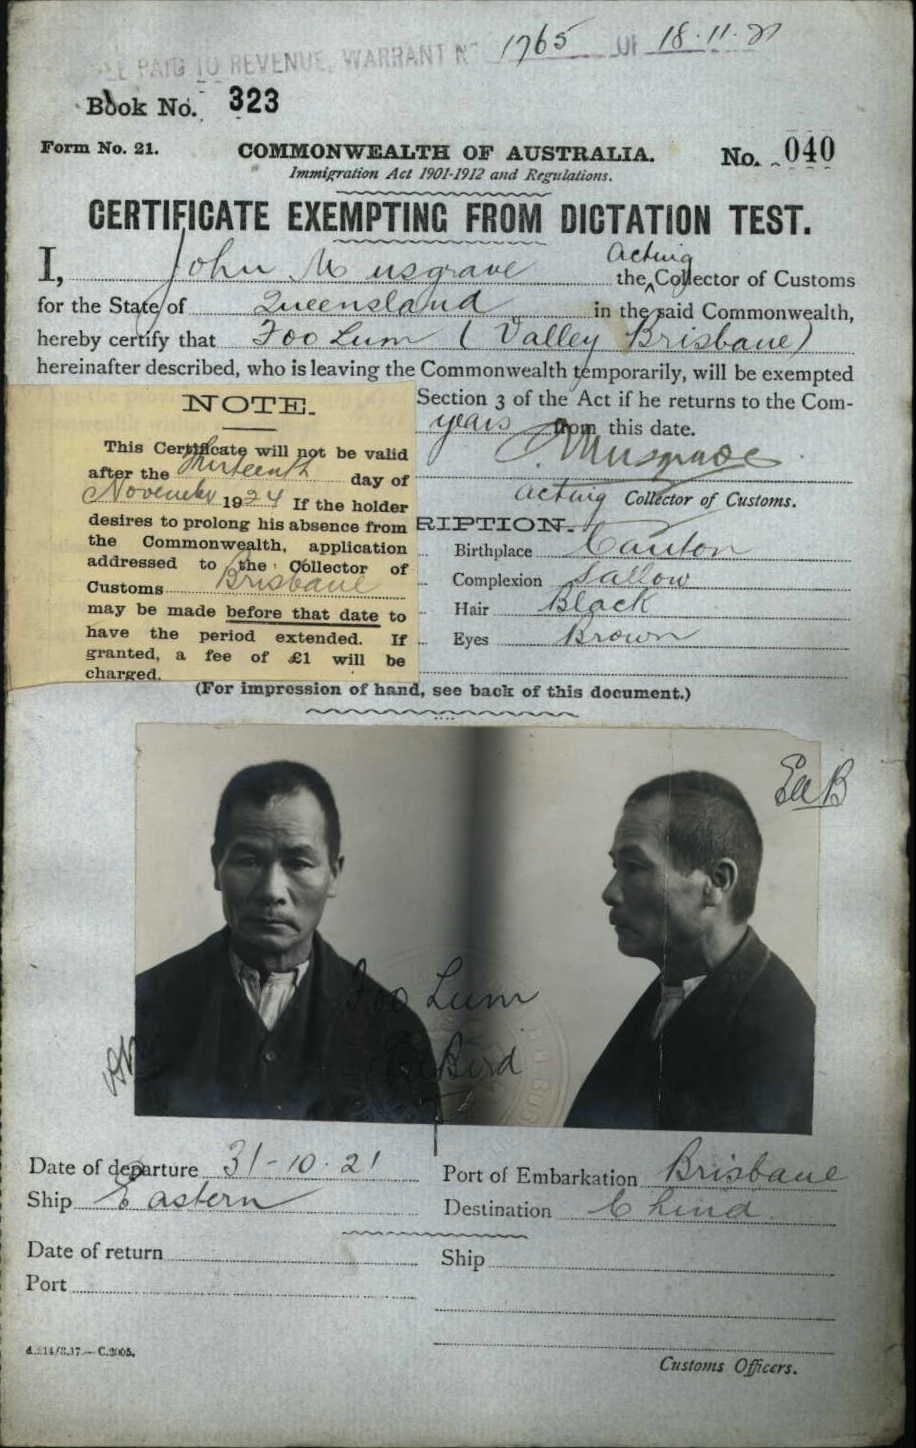 PAID TO REVENUE, WARRANT No 1765 OF 18.11.21
Book No. 323
Form No. 21.
COMMONWEALTH OF AUSTRALIA.
No. 040
Immigration Act 1901-1912 and Regulations.
CERTIFICATE EXEMPTING FROM DICTATION TEST.
I, John Musgrave the Acting Collector of Customs
for the State of Queensland in the said Commonwealth,
hereby certify that Foo Lum (Valley Brisbane)
hereinafter described, who is leaving the Commonwealth temporarily, will be exempted
Section 3 of the Act if he returns to the Com-
years from this date.
J Musgrave
Acting Collector of Customs.
RIPTION.
Birthplace Canton
Complexion Sallow
Hair Black
Eyes Brown
NOTE.
This Certificate will not be valid
after the Thirteenth day of
November 1924 If the holder
desires to prolong his absence from
the Commonwealth, application
addressed to the Collector of
Customs Brisbane
may be made before that date to
have the period extended. If
granted, a fee of £1 will be
charged.
(For impression of hand, see back of this document.)
EeB
Foo Lum
Bird
Date of departure 31-10-21
Port of Embarkation Brisbane
Ship Eastern
Destination China
Date of return
Ship
Port
C.3005.
Customs Officers.